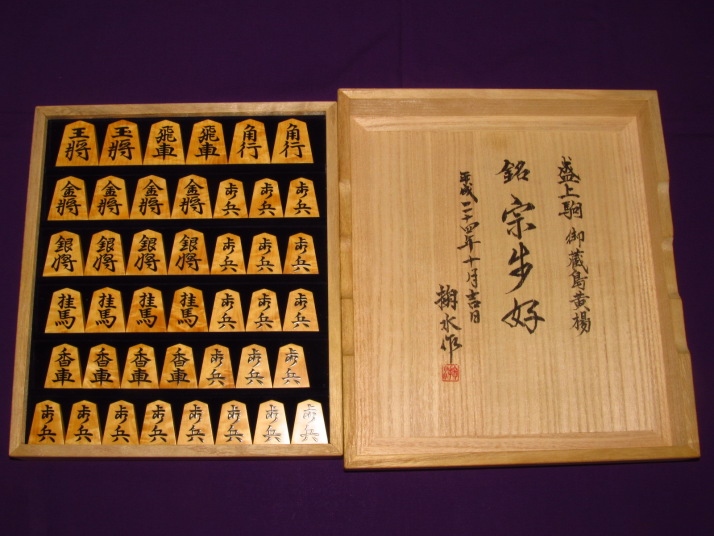 王将 玉将 飛車 飛車 角行 角行
金将 金将 金将 金将 歩兵 歩兵 歩兵
銀将 銀将 銀将 銀将 歩兵 歩兵 歩兵
桂馬 桂馬 桂馬 桂馬 歩兵 歩兵 歩兵
香車 香車 香車 香車 歩兵 歩兵 歩兵
歩兵 歩兵 歩兵 歩兵 歩兵 歩兵 歩兵 歩兵
盛上駒 御蔵島黄楊
銘 宗歩好
平成二十四年十月吉日
掬水作